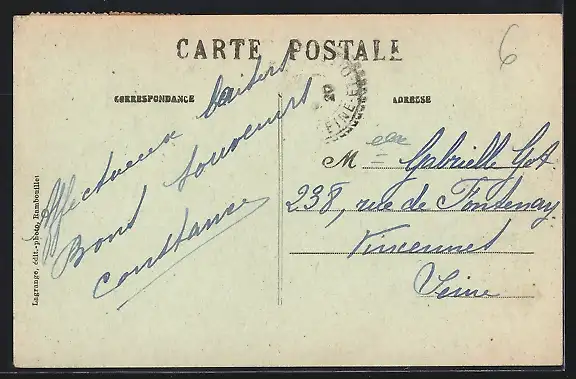 CARTE POSTALE
6
CORRESPONDANCE
ADRESSE
Affectueux baisers
Bons souvenirs
Constance
Melle Gabrielle Got
238, rue de Fontenay
Vincennes
Seine
20
Lagrange, édit.-photo, Rambouillet